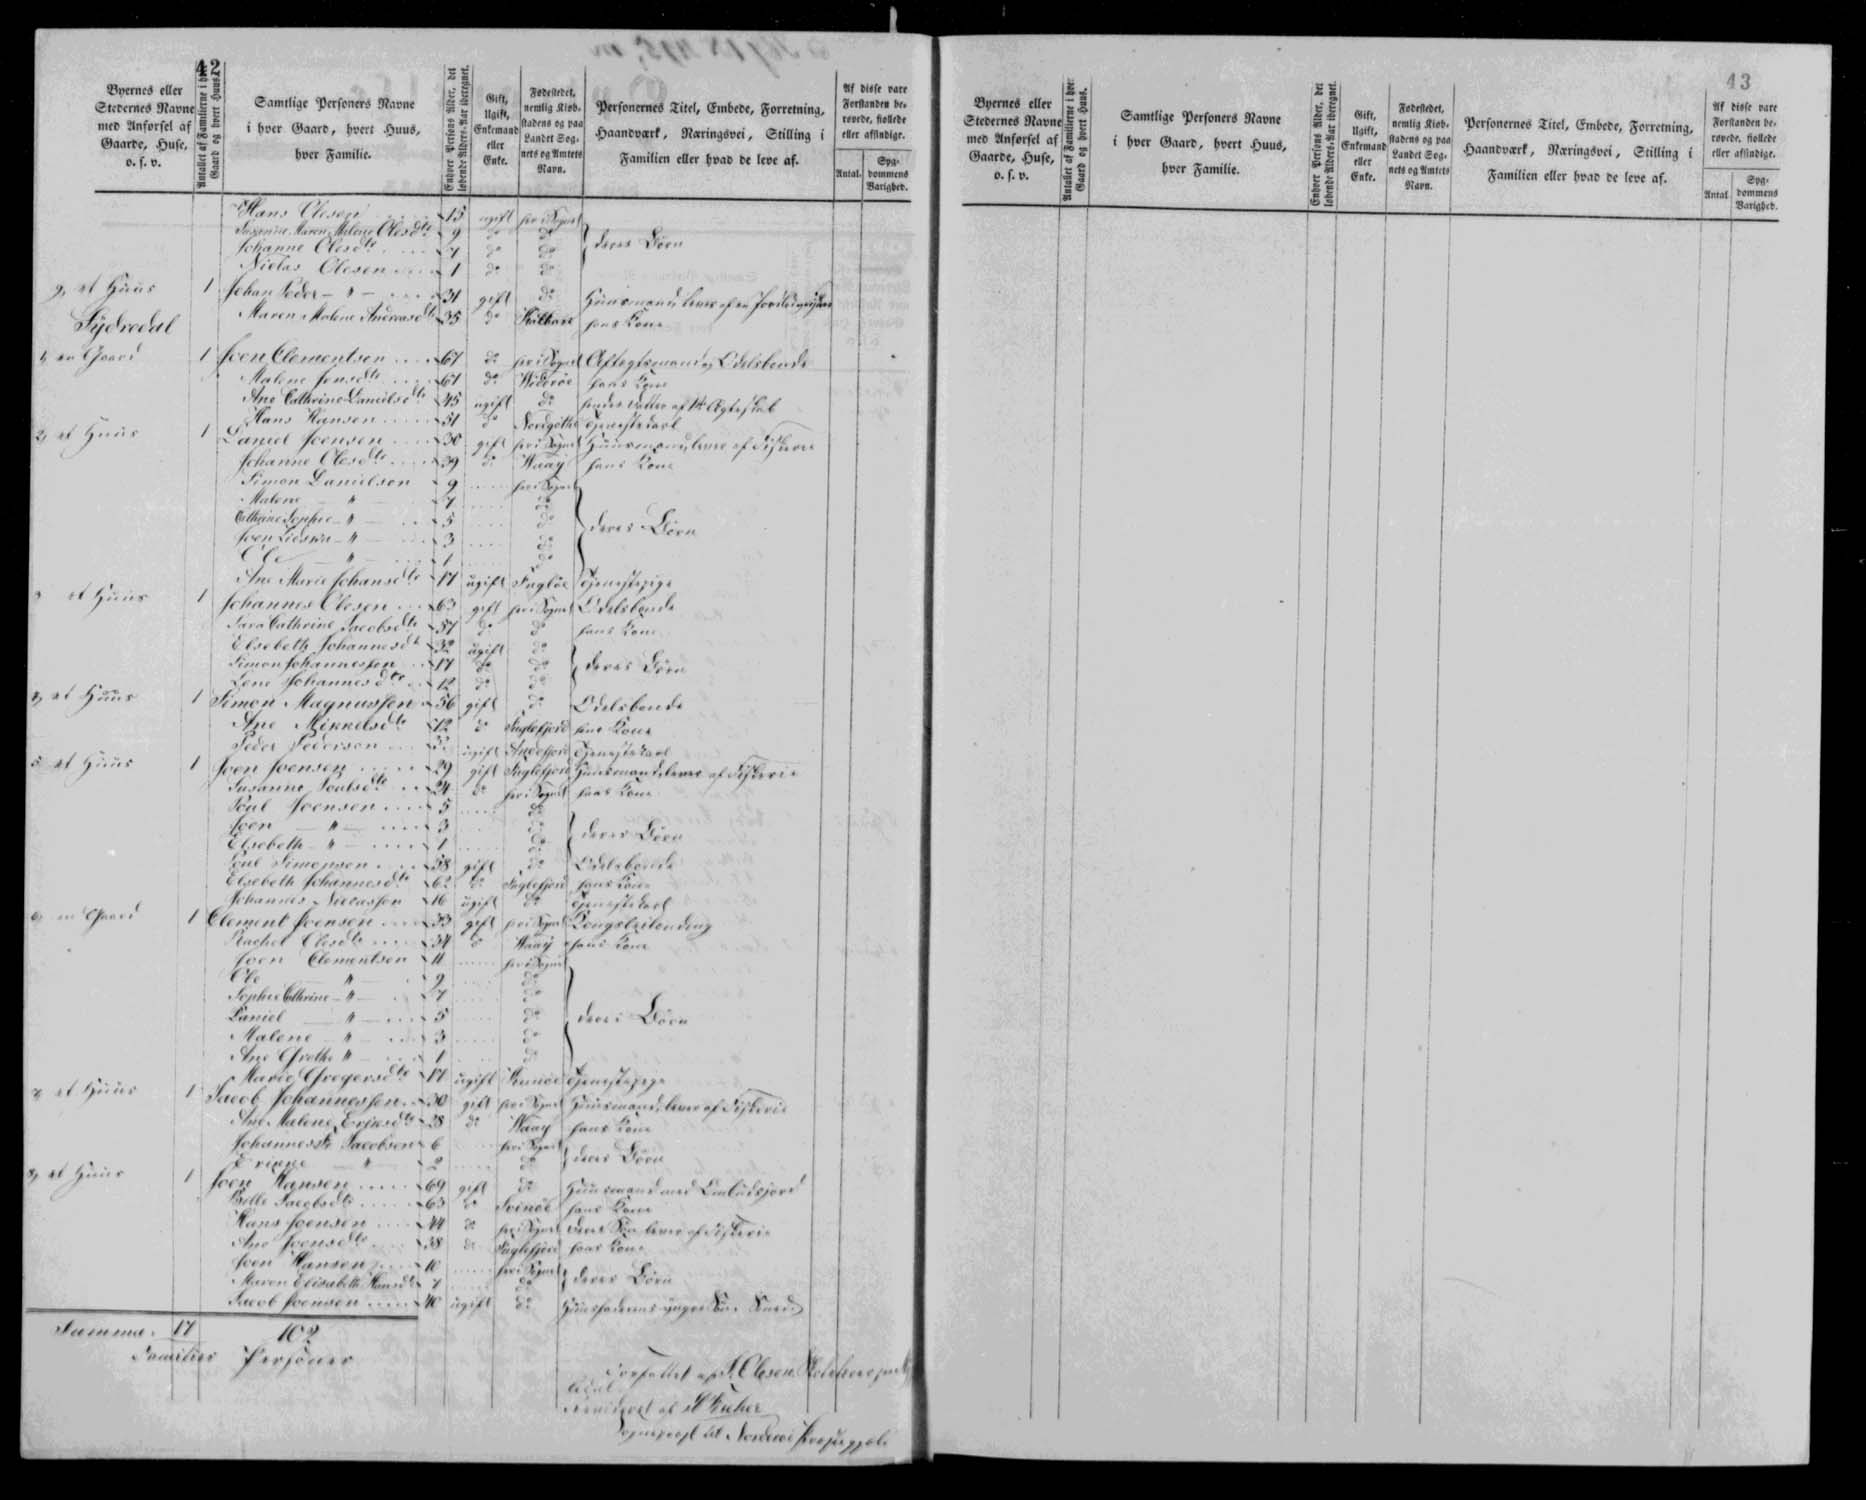 42
Byernes eller Stedernes Navne med Anførsel af Gaarde, Huse, o. s. v.
Antallet af Familierne i hver Gaard og hvert Huus.
Samtlige Personers Navne i hver Gaard, hvert Huus, hver Familie.
Enhver Persons Alder, det løbende Alders-Aar iberegnet.
Gift, Ugift, Enkemand eller Enke.
Fødestedet, nemlig Kiøbstadens og paa Landet Sognets og Amtets Navn.
Personernes Titel, Embede, Forretning, Haandværk, Næringsvei, Stilling i Familien eller hvad de leve af.
Af disse vare Forstanden berøvede, fiollede eller afsindige.
Antal.
Sygdommens Varighed.
Hans Olesen 15 ugift her i Sognet
Susanne Maren Malene Olesdtr 9 do do
Johanne Olesdtr 7 do do deres Børn
Niclas Olesen 1 do do
9, et Huus 1 Johan Peder — " — 31 gift do Huusmand, lever af
Maren Malene Andreasdtr 35 do hans Kone
Sydredal
1, en Gaard 1 Joen Clementsen 67 do her i Sognet Aftægtsmand og Odelsbonde
Malene Jensdtr 67 do Wideröe hans Kone
Ane Cathrine Danielsdtr 45 ugift do hendes Datter af 1t Ægteskab
Hans Hansen 51 do Nordgöthe Tjenestekarl
2, et Huus 1 Daniel Joensen 30 gift her i Sognet Huusmand, lever af Fiskerie
Johanne Olesdtr 39 do Waaÿ hans Kone
Simon Danielsen 9 her i Sognet
Malene — " — 7 do
Cathrine Sophie — " — 5 do deres Børn
Joen — " — 3 do
Ole — " — 1 do
Ane Marie Johansdtr 17 ugift Fuglöe Tjenestepige
3 et Huus 1 Johannes Olesen 63 gift her i Sognet Odelsbonde
Sara Cathrine Jacobsdtr 57 do do hans Kone
Elsebeth Johannesdtr 32 ugift do
Simon Johannessen 17 do do deres Børn
Lene Johannesdtr 12 do do
4, et Huus 1 Simon Magnussen 56 gift do Odelsbonde
Ane Mikkelsdtr do Fuglefjord hans Kone
Peder Pedersen ugift Andefjord Tjenestekarl
5 et Huus 1 Joen Joensen 29 gift Fuglefjord Huusmand, lever af Fiskerie
Susanne Poulsdtr 24 do her i Sognet hans Kone
Poul Joensen 5 do
Joen — " — 3 do deres Børn
Elsebeth — " — 1 do
Poul Simonsen 58 gift do Odelsbonde
Elsebeth Johannesdtr 62 do Fuglefjord hans Kone
Johannes Niclassen 16 ugift do Tjenestekarl
6, en Gaard 1 Clement Joensen 33 gift her i Sognet Kongsbonde
Rachel Olesdtr 34 do Waaÿ hans Kone
Joen Clementsen 11 her i Sognet
Ole — " — 9 do
Sophie Cathrine — " — 7 do
Daniel — " — 5 do deres Børn
Malene — " — 3 do
Ane Grethe " — 1 do
Marie Gregersdtr 17 ugift Kunöe Tjenestepige
7, et Huus 1 Jacob Johannessen 30 gift her i Sognet Huusmand, lever af Fiskerie
Ane Malene Eriksdtr 28 do Waaÿ hans Kone
Johannes Jacobsen 6 her i Sognet
— " — 2 do deres Børn
8, et Huus 1 Joen Hansen 69 gift do Huusmand med
Bille Jacobsdtr 63 do Svinöe hans Kone
Hans Joensen 44 do her i Sognet deres Søn, lever af Fiskerie
Ane Joensdtr 38 do Fuglefjord hans Kone
Joen Hansen 10 her i Sognet
Maren Elisabeth Hansdtr 7 do deres Børn
Jacob Joensen 40 ugift do Huusfaderens yngre Søn
Summa. 17 102
Familier Personer
Forfattet af J. Olesen
Revideret af
Sognepræst til Norderöe Præstegjeld
43
Byernes eller Stedernes Navne med Anførsel af Gaarde, Huse, o. s. v.
Antallet af Familierne i hver Gaard og hvert Huus.
Samtlige Personers Navne i hver Gaard, hvert Huus, hver Familie.
Enhver Persons Alder, det løbende Alders-Aar iberegnet.
Gift, Ugift, Enkemand eller Enke.
Fødestedet, nemlig Kiøbstadens og paa Landet Sognets og Amtets Navn.
Personernes Titel, Embede, Forretning, Haandværk, Næringsvei, Stilling i Familien eller hvad de leve af.
Af disse vare Forstanden berøvede, fiollede eller afsindige.
Antal
Sygdommens Varighed.